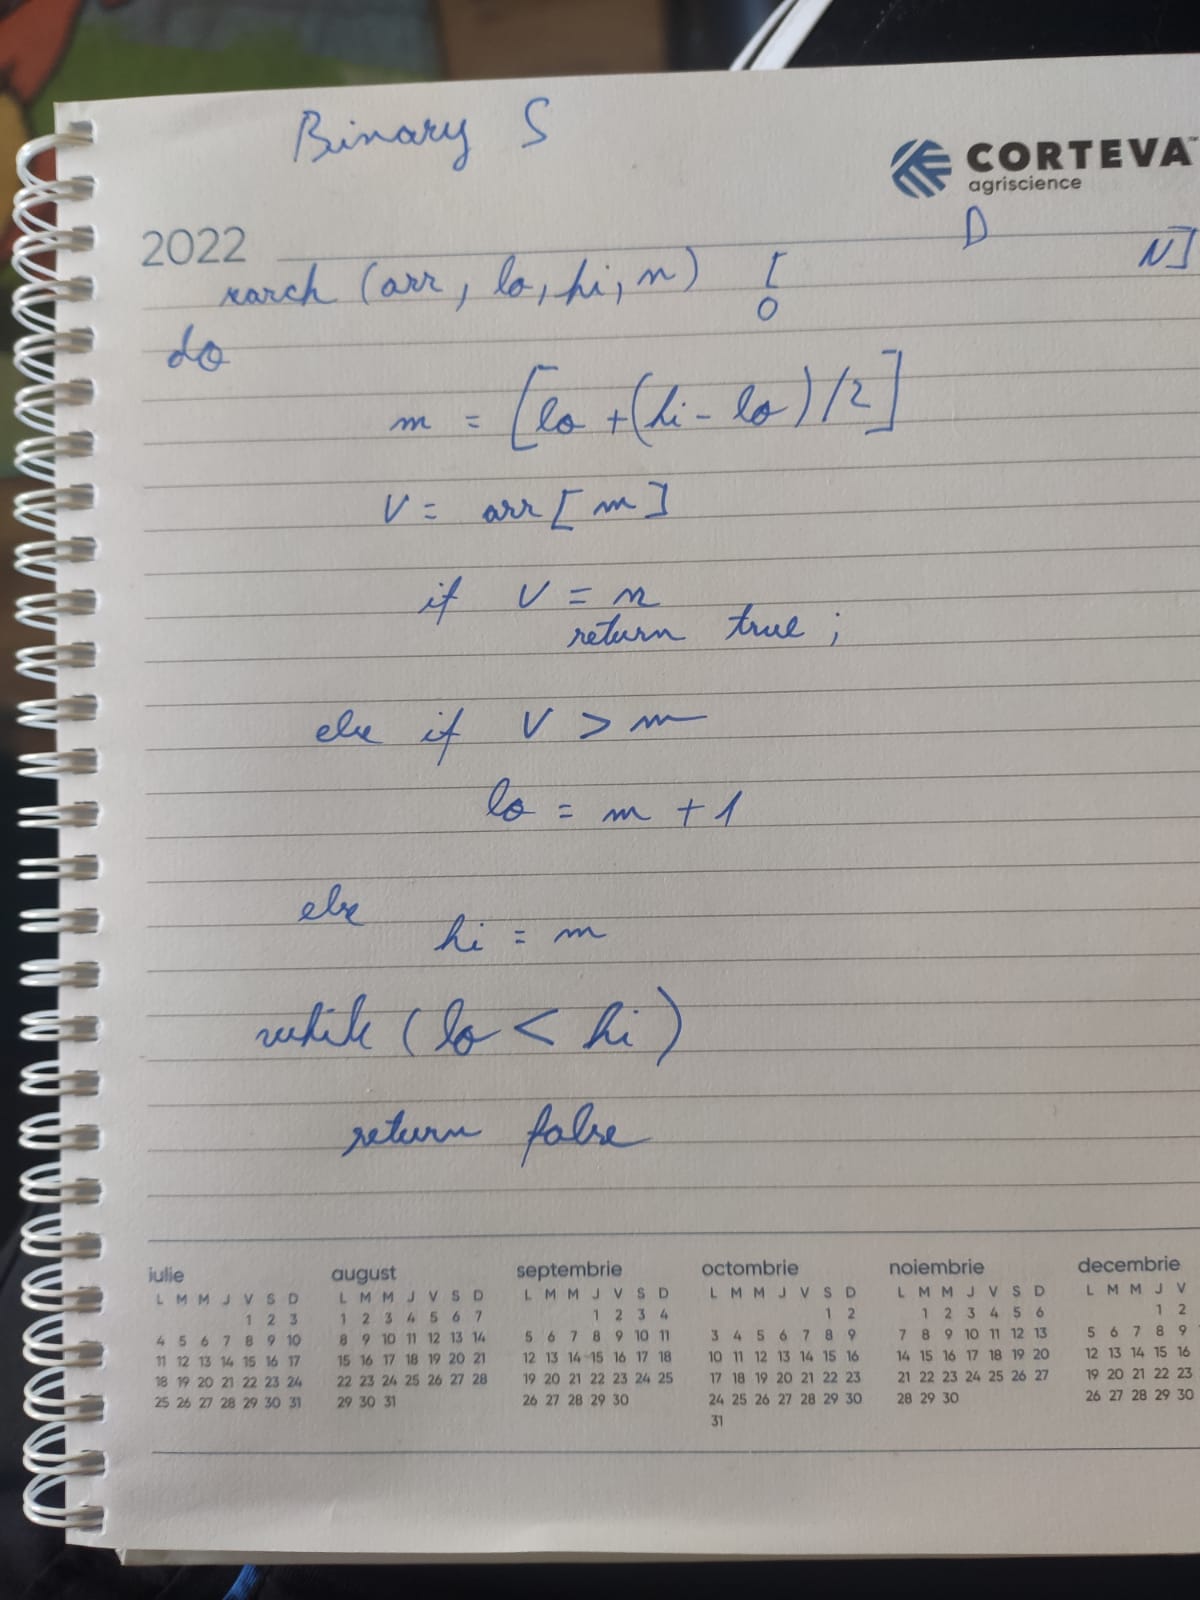 Binary S
CORTEVA™
agriscience
2022
D
N]
search (arr, lo, hi, n) [
0
do
m = [lo + (hi - lo)/2]
V = arr [m]
if V = n
return true;
else if V > m
lo = m + 1
else
hi = m
while (lo < hi)
return false
iulie
L M M J V S D
1 2 3
4 5 6 7 8 9 10
11 12 13 14 15 16 17
18 19 20 21 22 23 24
25 26 27 28 29 30 31
august
L M M J V S D
1 2 3 4 5 6 7
8 9 10 11 12 13 14
15 16 17 18 19 20 21
22 23 24 25 26 27 28
29 30 31
septembrie
L M M J V S D
1 2 3 4
5 6 7 8 9 10 11
12 13 14 15 16 17 18
19 20 21 22 23 24 25
26 27 28 29 30
octombrie
L M M J V S D
1 2
3 4 5 6 7 8 9
10 11 12 13 14 15 16
17 18 19 20 21 22 23
24 25 26 27 28 29 30
31
noiembrie
L M M J V S D
1 2 3 4 5 6
7 8 9 10 11 12 13
14 15 16 17 18 19 20
21 22 23 24 25 26 27
28 29 30
decembrie
L M M J V
1 2
5 6 7 8 9
12 13 14 15 16
19 20 21 22 23
26 27 28 29 30